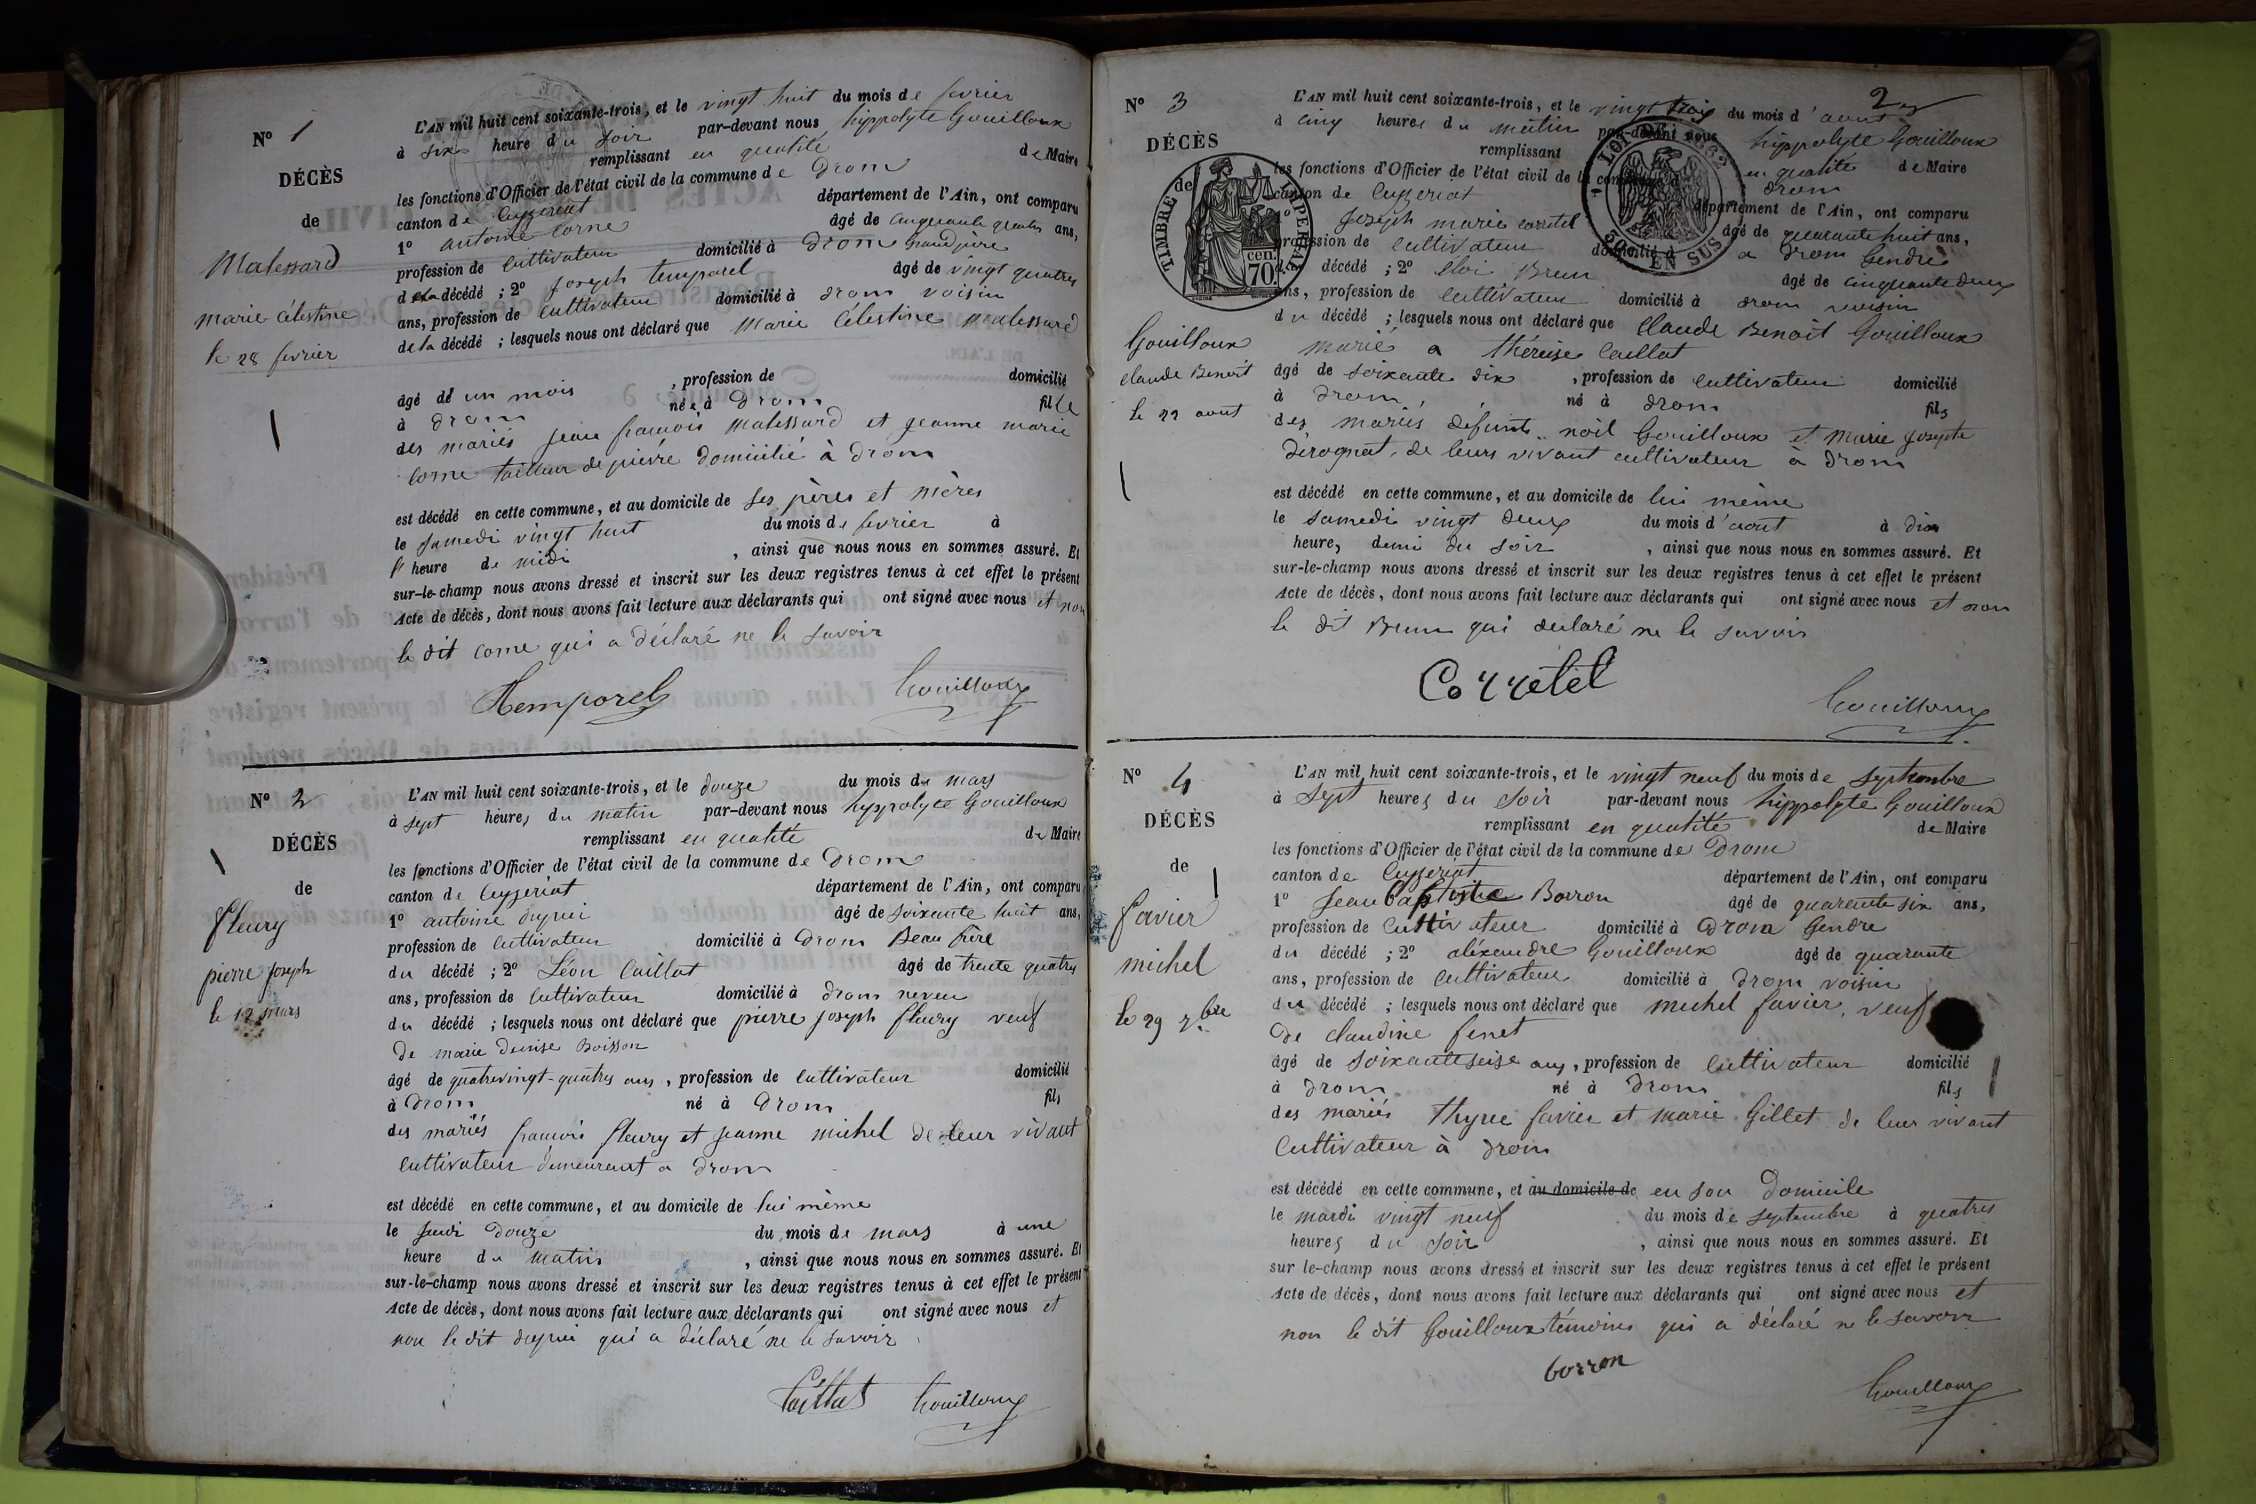 N° 1
DÉCÈS
de
Malessard
marie Célestine
le 28 fevrier
L'AN mil huit cent soixante-trois, et le vingt huit du mois de fevrier
à six heure du soir par-devant nous hyppolyte Gouilloux
remplissant en qualité de Maire
les fonctions d'Officier de l'état civil de la commune de Drom
canton de Ceyzeriat département de l'Ain, ont comparu
1° antoine Corne âgé de cinquante quatre ans,
profession de cultivateur domicilié à Drom grand père
de la décédé ; 2° Joseph temporel âgé de vingt quatres
ans, profession de cultivateur domicilié à Drom voisin
de la décédé ; lesquels nous ont déclaré que Marie Célestine Malessard
âgé de un mois , profession de domicilié
à Drom née à Drom fille
des mariés Jean françois Malessard et jeanne marie
Corne tailleur de pierre domicilié à Drom
est décédé en cette commune, et au domicile de ses pères et mères
le samedi vingt huit du mois de fevrier à
heure de midi , ainsi que nous nous en sommes assuré. Et
sur-le-champ nous avons dressé et inscrit sur les deux registres tenus à cet effet le présent
Acte de décès, dont nous avons fait lecture aux déclarants qui ont signé avec nous et non
le dit Corne qui a déclaré ne le savoir
Temporel Gouilloux
N° 2
DÉCÈS
de
fleury
pierre Joseph
le 12 mars
L'AN mil huit cent soixante-trois, et le douze du mois de mars
à sept heures du matin par-devant nous hyppolyte Gouilloux
remplissant en qualité de Maire
les fonctions d'Officier de l'état civil de la commune de Drom
canton de Ceyzeriat département de l'Ain, ont comparu
1° antoine dupui âgé de soixante huit ans,
profession de cultivateur domicilié à Drom Beau frère
du décédé ; 2° Léon Caillat âgé de trente quatres
ans, profession de cultivateur domicilié à Drom neveu
du décédé ; lesquels nous ont déclaré que pierre joseph fleury veuf
de marie Denise Boisson
âgé de quatrevingt-quatres ans , profession de cultivateur domicilié
à Drom né à Drom fils
des mariés françois fleury et jeanne michel de leur vivant
cultivateur demeurant a Drom
est décédé en cette commune, et au domicile de lui même
le jeudi douze du mois de mars à une
heure du matin , ainsi que nous nous en sommes assuré. Et
sur-le-champ nous avons dressé et inscrit sur les deux registres tenus à cet effet le présent
Acte de décès, dont nous avons fait lecture aux déclarants qui ont signé avec nous et
non le dit dupui qui a déclaré ne le savoir
Caillat Gouilloux
2
N° 3
DÉCÈS
de
TIMBRE IMPÉRIAL
70 cen.
Gouilloux
Claude Benoit
le 22 aout
L'AN mil huit cent soixante-trois, et le vingt trois du mois d'aout
à cinq heures du matin par-devant nous hippolyte Gouilloux
remplissant en qualité de Maire
les fonctions d'Officier de l'état civil de la commune de Drom
canton de Ceyzeriat département de l'Ain, ont comparu
1° Joseph marie corretel âgé de quarante huit ans,
profession de cultivateur domicilié à Drom Gendre
décédé ; 2° Eloi Brun âgé de cinquante deux
ans, profession de cultivateur domicilié à Drom voisin
du décédé ; lesquels nous ont déclaré que Claude Benoit Gouilloux
marié a théreise Caillat
âgé de soixante dix , profession de cultivateur domicilié
à Drom né à Drom fils
des mariés défunts noël Gouilloux et Marie Josephte
Dérognat, de leurs vivant cultivateur à Drom
est décédé en cette commune, et au domicile de lui même
le samedi vingt deux du mois d'aout à dix
heures demi du soir , ainsi que nous nous en sommes assuré. Et
sur-le-champ nous avons dressé et inscrit sur les deux registres tenus à cet effet le présent
Acte de décès, dont nous avons fait lecture aux déclarants qui ont signé avec nous et non
le dit Brun qui declaré ne le savoir
Corretel
Gouilloux
N° 4
DÉCÈS
de
favier
michel
le 29 7bre
L'AN mil huit cent soixante-trois, et le vingt neuf du mois de septembre
à sept heures du soir par-devant nous hippolyte Gouilloux
remplissant en qualité de Maire
les fonctions d'Officier de l'état civil de la commune de Drom
canton de Ceyzeriat département de l'Ain, ont comparu
1° Jean Baptiste Borron âgé de quarante six ans,
profession de cultivateur domicilié à Drom Gendre
du décédé ; 2° aléxandre Gouilloux âgé de quarante
ans, profession de cultivateur domicilié à Drom voisin
du décédé ; lesquels nous ont déclaré que michel favier, veuf
de claudine fenet
âgé de soixante seise ans, profession de cultivateur domicilié
à Drom né à Drom fils
des mariés favier et marie Gillet de leur vivant
cultivateur à Drom
est décédé en cette commune, et au domicile de en son domicile
le mardi vingt neuf du mois de septembre à quatres
heures du soir , ainsi que nous nous en sommes assuré. Et
sur le-champ nous avons dressé et inscrit sur les deux registres tenus à cet effet le présent
Acte de décès, dont nous avons fait lecture aux déclarants qui ont signé avec nous et
non le dit Gouilloux témoins qui a déclaré ne le savoir
borron
Gouilloux